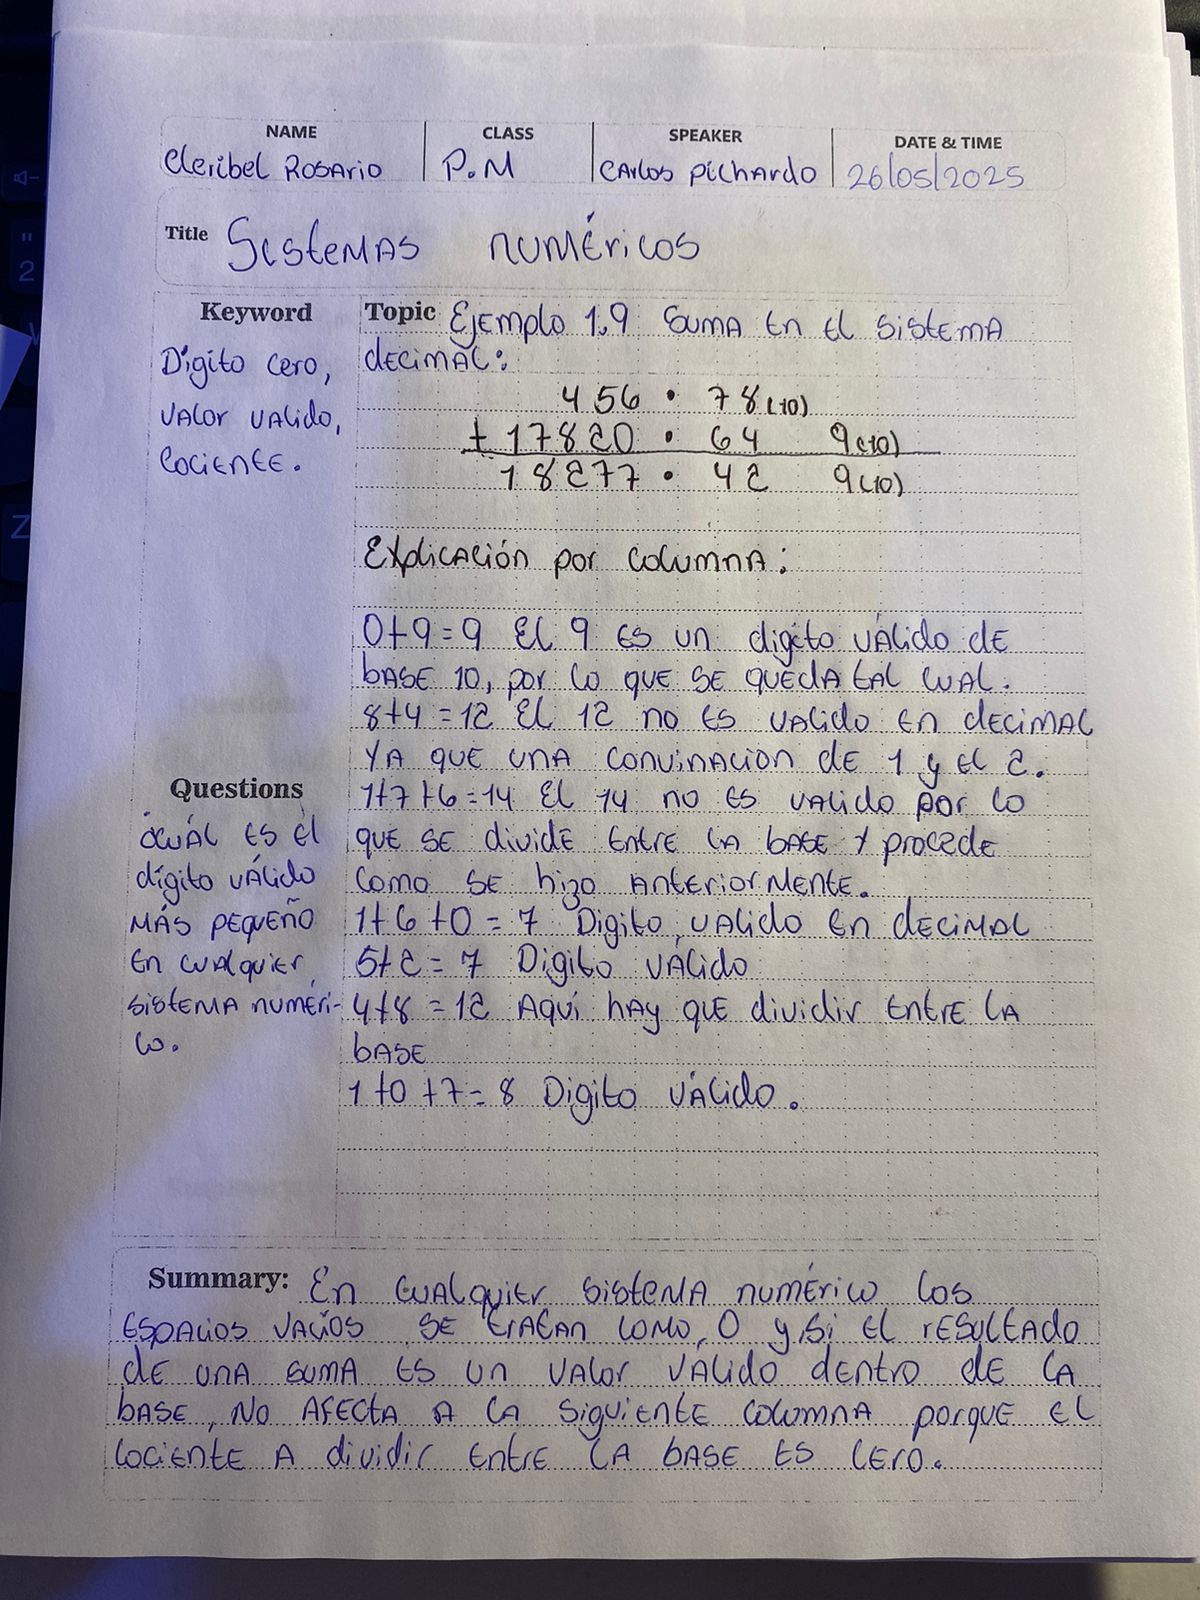 NAME CLASS SPEAKER DATE & TIME
Cleribel Rosario P.M Carlos Pichardo 26/05/2025
Title Sistemas numéricos
Keyword
Digito cero,
valor valido,
cociente.
Topic Ejemplo 1.9 suma en el sistema
decimal:
456 . 78(10)
+ 17820 . 64 9(10)
18277 . 42 9(10)
Explicación por columna:
0+9=9 El 9 es un digito válido de
base 10, por lo que se queda tal cual.
8+4=12 El 12 no es valido en decimal
ya que una convinacion de 1 y el 2.
1+7+6=14 El 14 no es valido por lo
que se divide entre la base y procede
como se hizo anteriormente.
1+6+0=7 Digito valido en decimal
5+2=7 Digito válido
4+8=12 Aquí hay que dividir entre la
base
1+0+7=8 Digito válido.
Questions
¿cuál es el
dígito válido
más pequeño
en cualquier
sistema numéri-
co.
Summary: En cualquier sistema numérico los
espacios vacíos se tratan como 0 y, si el resultado
de una suma es un valor válido dentro de la
base, no afecta a la siguiente columna porque el
cociente a dividir entre la base es cero.